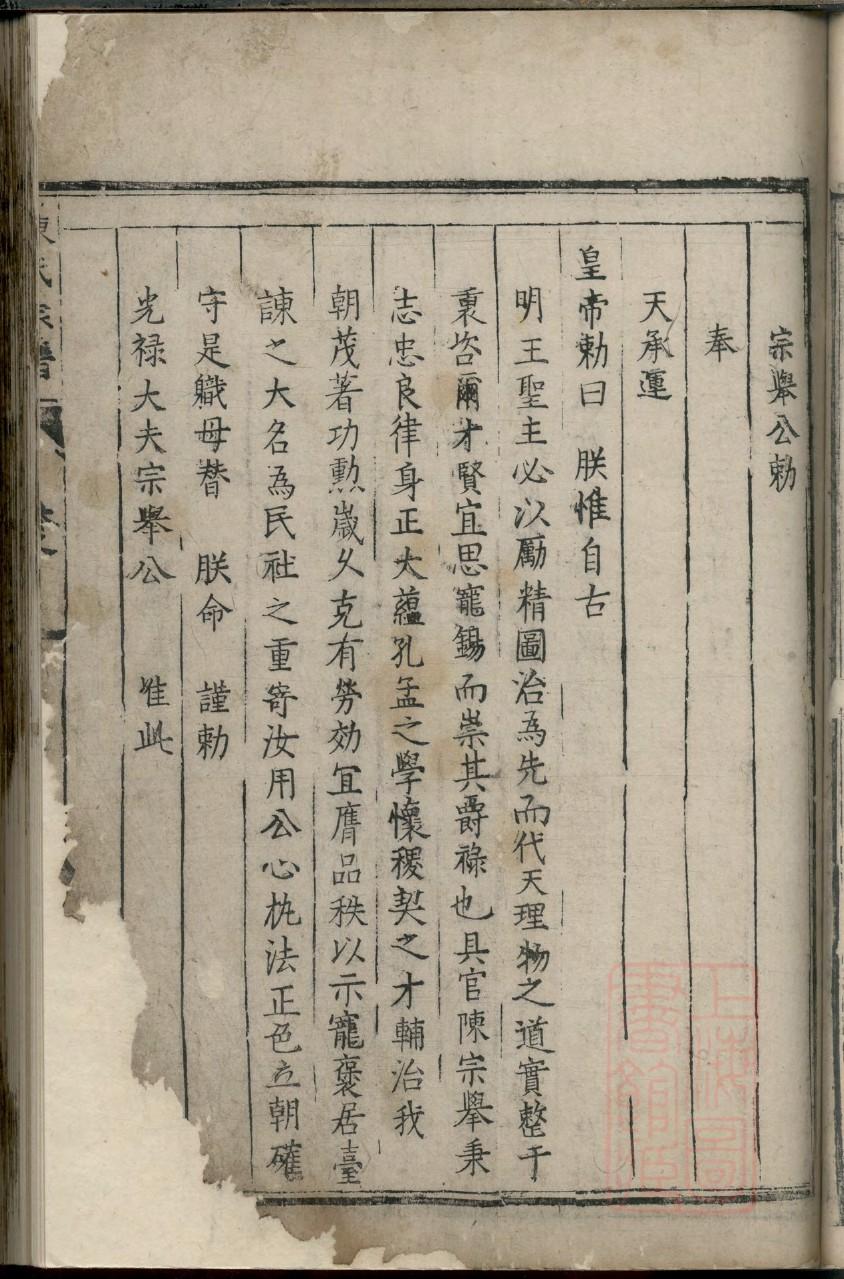 宗舉公勅
奉
天承運
皇帝勅曰 朕惟自古
明王聖主必以勵精圖治為先而代天理物之道實整于
褱咨爾才賢宜思寵錫而崇其爵祿也具官陳宗舉秉
志忠良律身正大蘊孔孟之學懷稷契之才輔治我
朝茂著功勲歲久克有勞効宜膺品秩以示寵褒居臺
諫之大名為民社之重寄汝用公心執法正色立朝確
守是軄毋替 朕命 謹勅
光禄大夫宗舉公 惟此
陳氏宗譜
上海圖
書館藏